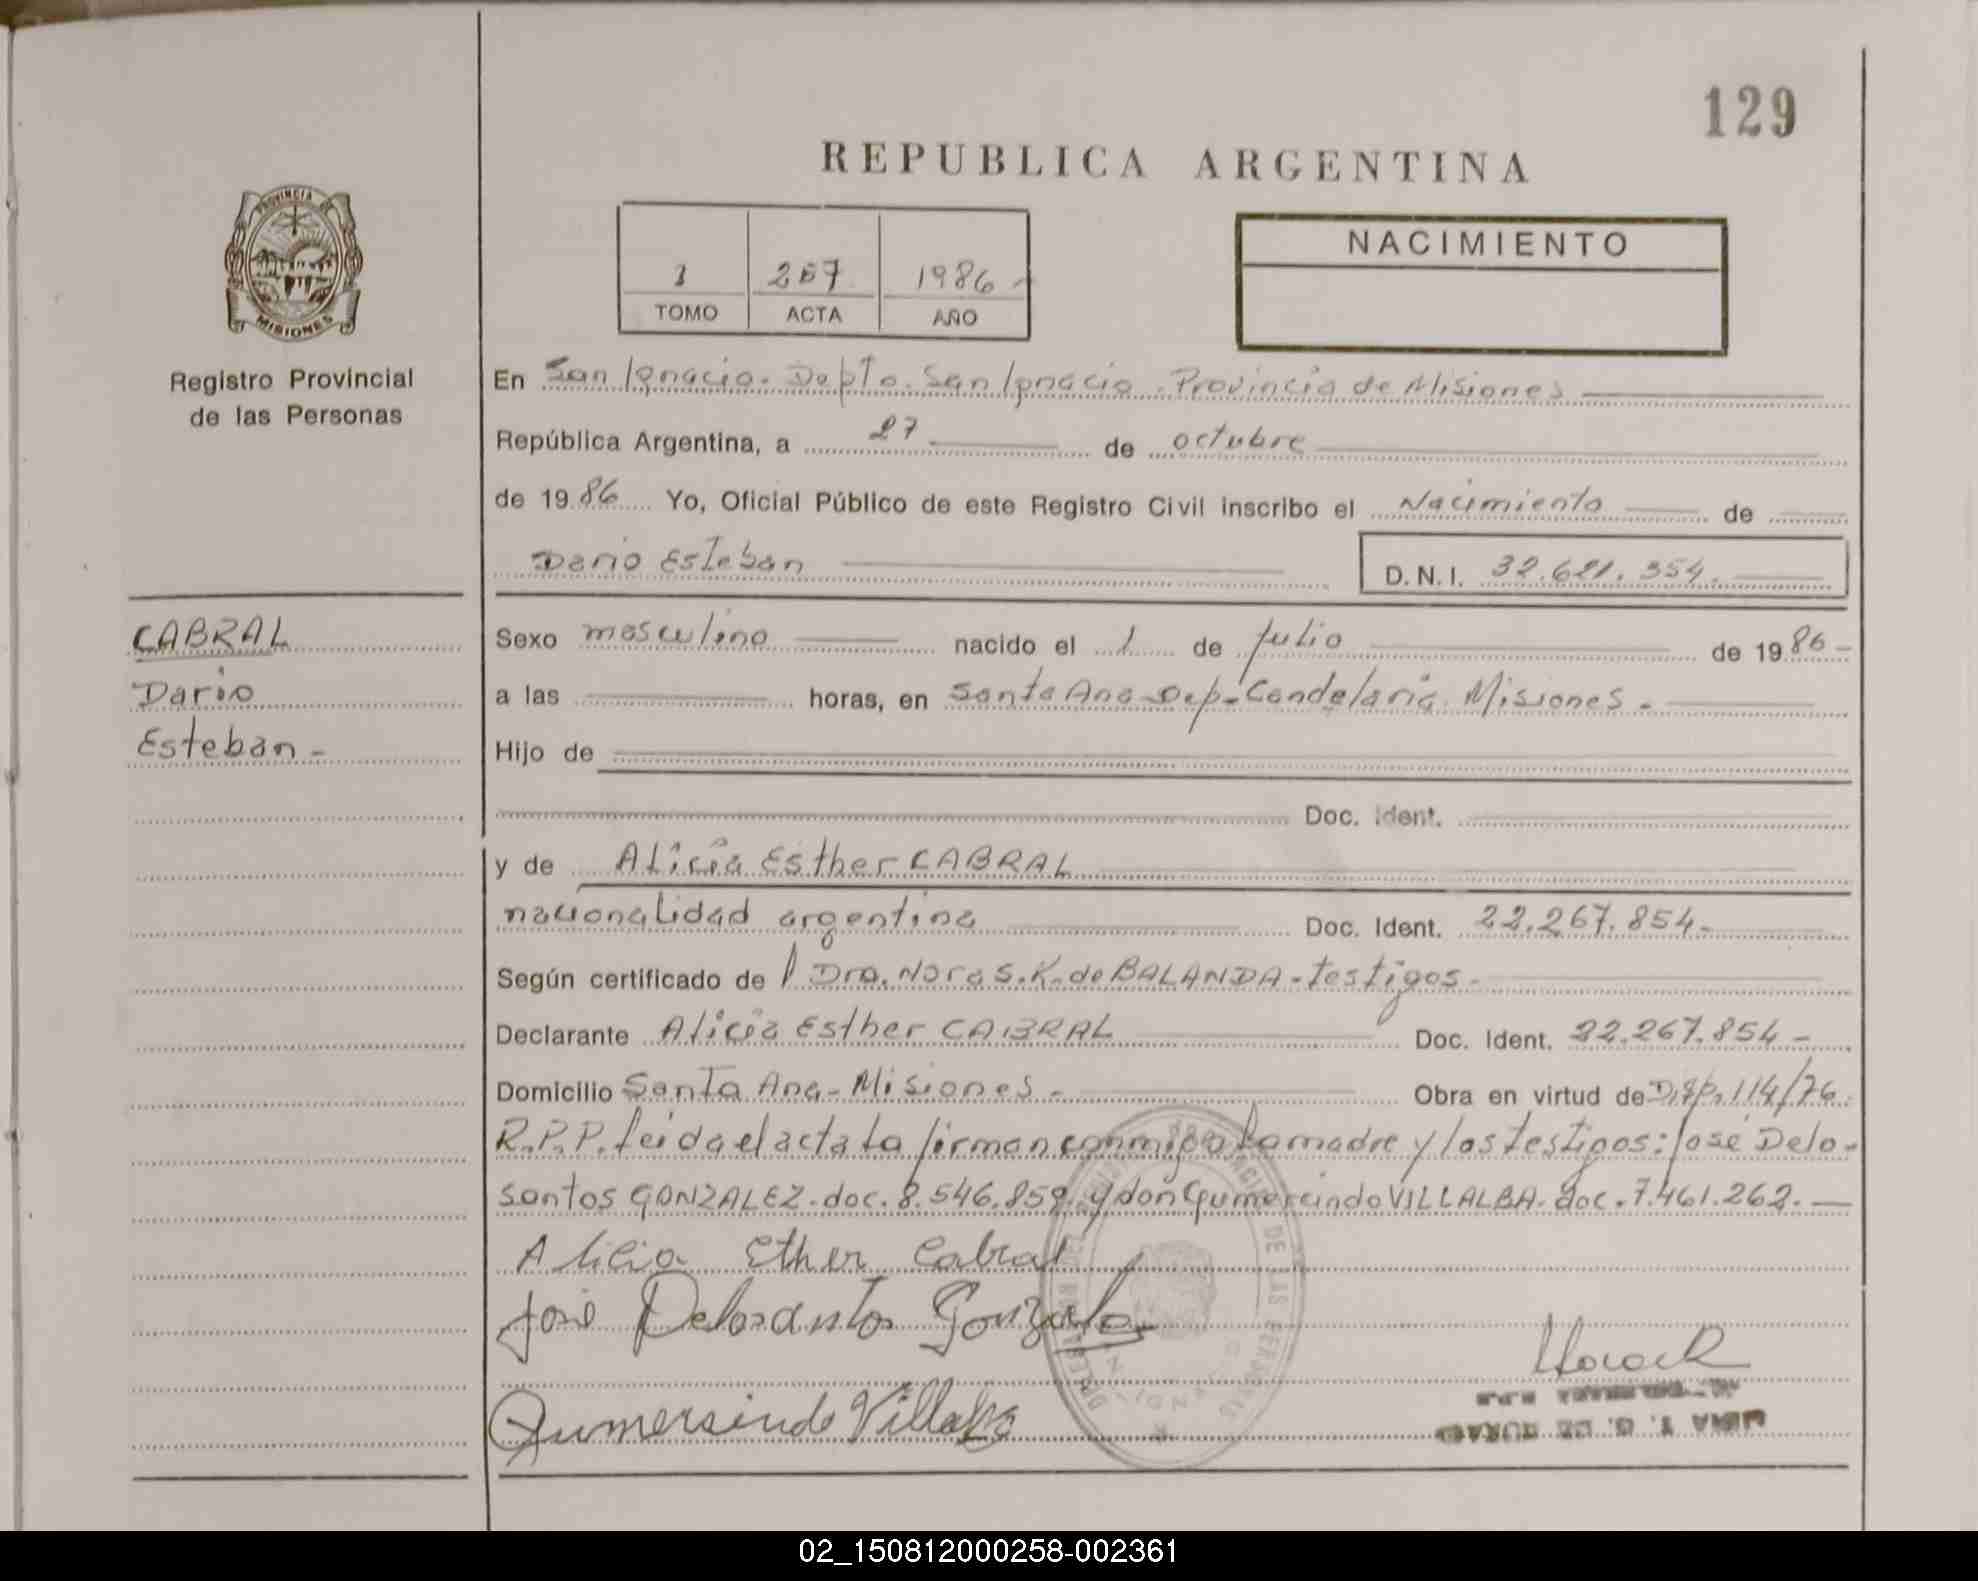 129
REPUBLICA ARGENTINA
PROVINCIA DE
MISIONES
Registro Provincial
de las Personas
1 267 1986
TOMO ACTA AÑO
NACIMIENTO
En San Ignacio. Depto. San Ignacio. Provincia de Misiones
República Argentina, a 27 de octubre
de 1986 Yo, Oficial Público de este Registro Civil inscribo el Nacimiento de
Dario Esteban D.N.I. 32.621.354.
CABRAL
Dario
Esteban-
Sexo masculino nacido el 1 de Julio de 1986-
a las horas, en Santa Ana Dep-Candelaria. Misiones-
Hijo de
Doc. Ident.
y de Alicia Esther CABRAL
nacionalidad argentina Doc. Ident. 22.267.854-
Según certificado de Dra. Nora S.K. de BALANDA-testigos-
Declarante Alicia Esther CABRAL Doc. Ident. 22.267.854-
Domicilio Santa Ana-Misiones- Obra en virtud de Disp. 114/76
R.P.P. leida el acta la firman conmigo la madre y los testigos: José Delo-
santos GONZALEZ. doc. 8.546.859 y don Gumercindo VILLALBA. doc. 7.461.262.
Alicia Ether Cabral
José Delosantos Gonzalez
Gumersindo Villalba
02_150812000258-002361